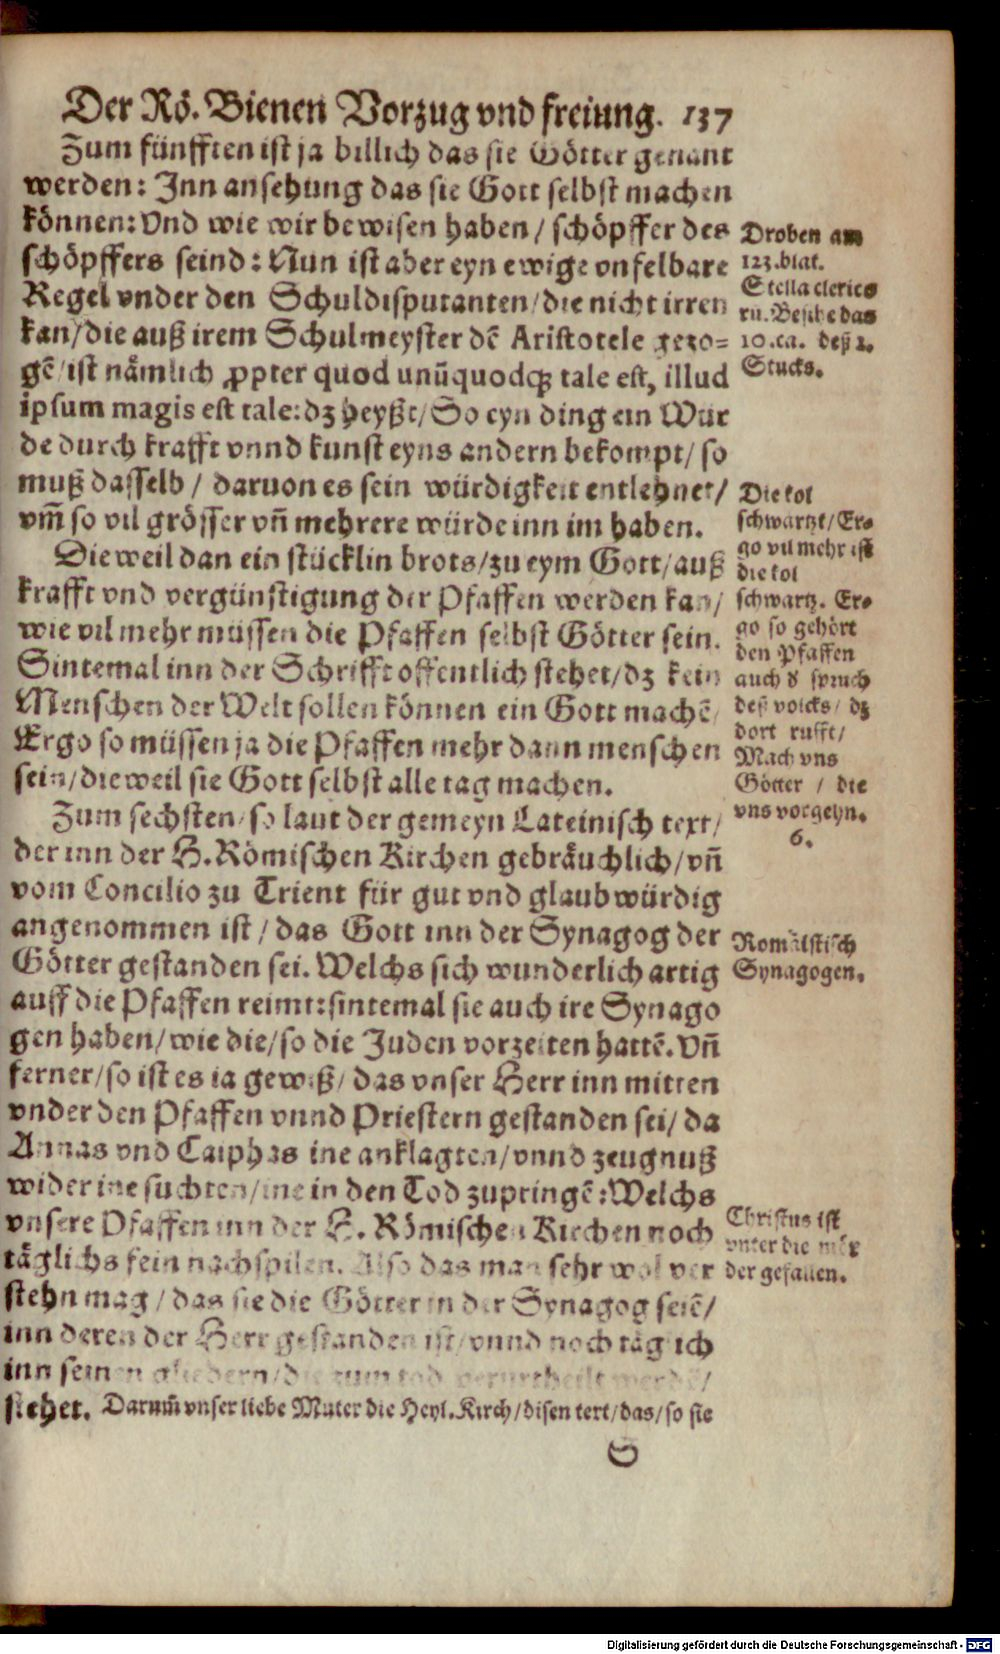 Der Rö. Bienen Vorzug vnd freiung. 137
Zum fünfften ist ja billich das sie Götter genant
werden: Inn ansehung das sie Gott selbst machen
können: Vnd wie wir bewisen haben / schöpffer des
schöpffers seind: Nun ist aber eyn ewige vnfelbare
Regel vnder den Schuldisputanten / die nicht irren
kan / die auß irem Schulmeyster dē Aristotele gezo=
gē / ist nämlich ꝓpter quod unūquodqꝫ tale est, illud
ipsum magis est tale: dz heyßt / So eyn ding ein Wür
de durch krafft vnnd kunst eyns andern bekompt / so
muß dasselb / daruon es sein würdigkeit entlehnet /
vm̄ so vil grösser vn̄ mehrere würde inn im haben.
Die weil dan ein stücklin brots / zu eym Gott / auß
krafft vnd vergünstigung der Pfaffen werden kan /
wie vil mehr müssen die Pfaffen selbst Götter sein.
Sintemal inn der Schrifft offentlich stehet / dz kein
Menschen der Welt sollen können ein Gott machē /
Ergo so müssen ja die Pfaffen mehr dann menschen
sein / die weil sie Gott selbst alle tag machen.
Zum sechsten / so laut der gemeyn Lateinisch text /
der inn der H. Römischen Kirchen gebräuchlich / vn̄
vom Concilio zu Trient für gut vnd glaubwürdig
angenommen ist / das Gott inn der Synagog der
Götter gestanden sei. Welchs sich wunderlich artig
auff die Pfaffen reimt: sintemal sie auch ire Synago
gen haben / wie die / so die Juden vorzeiten hattē. Vn̄
ferner / so ist es ia gewiß / das vnser Herr inn mitten
vnder den Pfaffen vnnd Priestern gestanden sei / da
Annas vnd Caiphas ine anklagten / vnnd zeugnuß
wider ine suchten / ine in den Tod zupringē: Welchs
vnsere Pfaffen inn der H. Römischen Kirchen noch
täglichs fein nachspilen. Also das man sehr wol ver
stehn mag / das sie die Götter in der Synagog seiē /
inn deren der Herr gestanden ist / vnnd noch täglich
inn seinen gliedern / die zum tod verurtheilt werdē /
stehet. Darum̄ vnser liebe Muter die Heyl. Kirch / disen text / das / so sie
S
Droben am
123. blat.
Stella clerico
rū. Besihe das
10. ca. deß 2.
Stucks.
Die kol
schwartzt / Er=
go vil mehr ist
die kol
schwartz. Er=
go so gehört
den Pfaffen
auch ð spruch
deß volcks / dz
dort rufft /
Mach vns
Götter / die
vns vorgehn.
6.
Romälstisch
Synagogen.
Christus ist
vnter die mör
der gefallen.
Digitalisierung gefördert durch die Deutsche Forschungsgemeinschaft - DFG